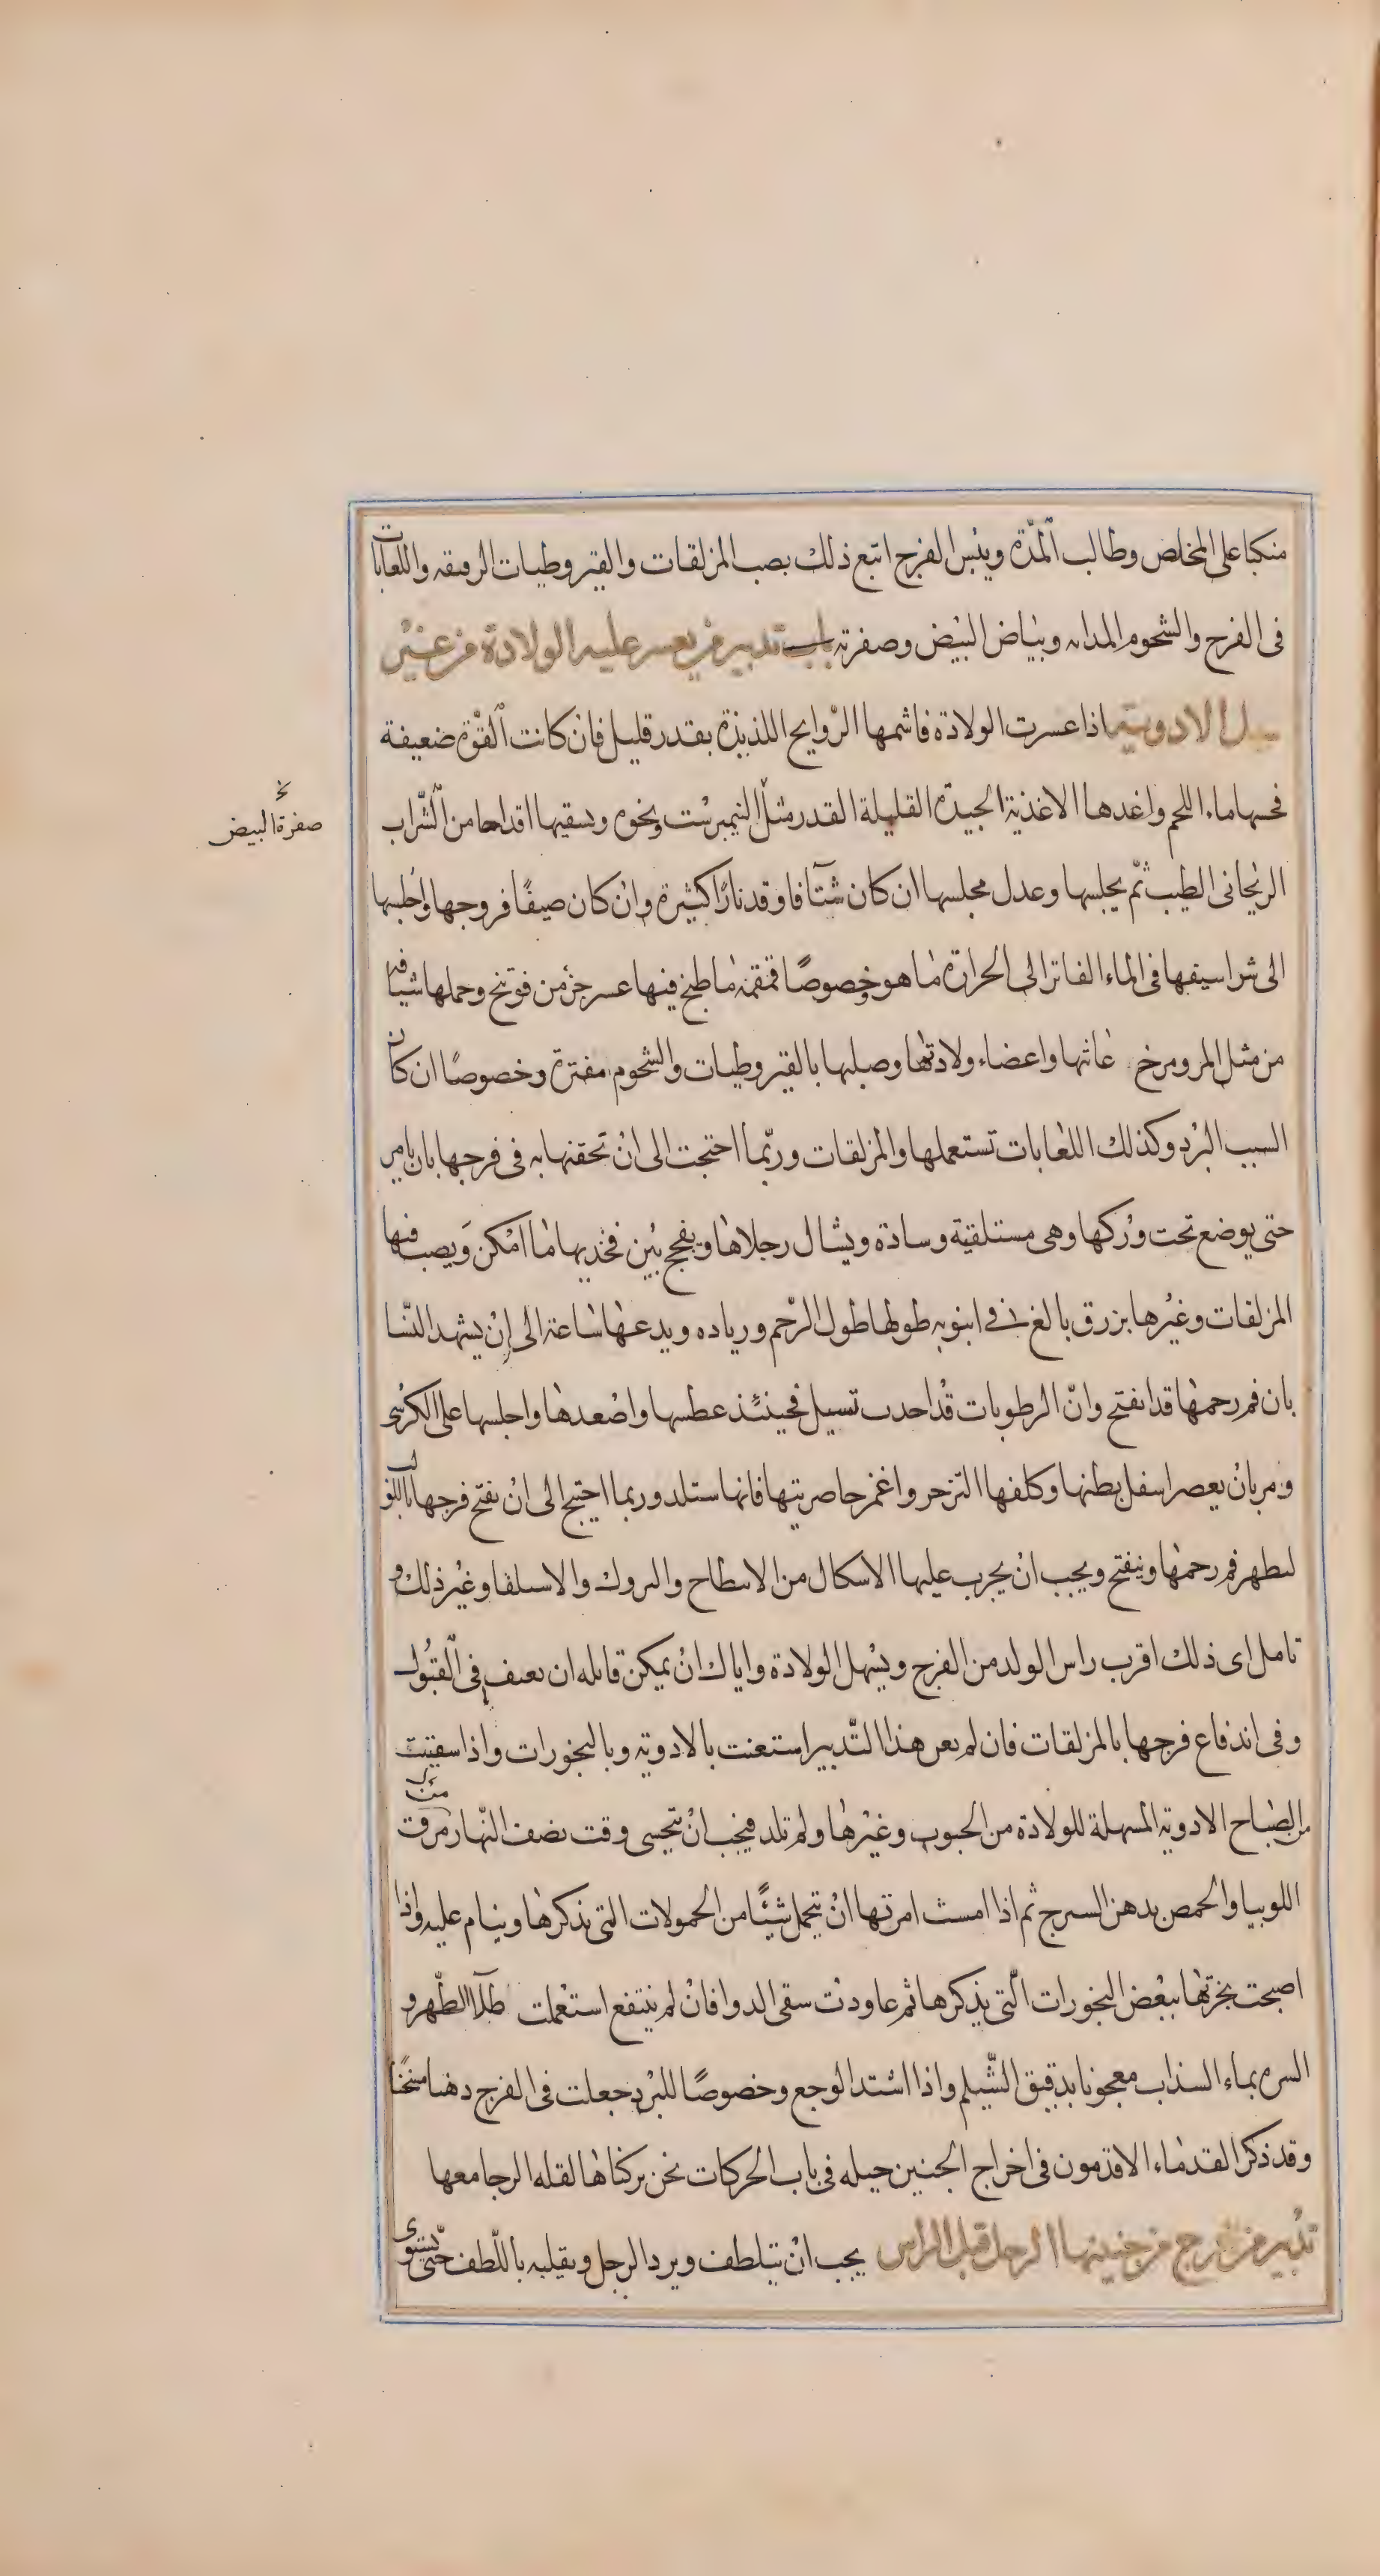 منكبا على المخلص وطالب المدّة ويبس الفرج اتبع ذلك بصب المزلقات والقيروطيات الرقيقه واللعابات
فى الفرج والشحوم المدابه وبياض البيض وصفرته باب تدبير من يعسر عليه الولادة من غير
الادوية اذا عسرت الولادة فاشمها الرّوايح اللذيذة بقدر قليل فان كانت القوّة ضعيفة
فحسها ماء اللحم واغدها الاغذية الجيدة القليلة القدر مثل النيمبرشت ونحوه ويسقيها اقداحا من الشّراب
صفرة البيض
الريحانى الطيب ثمّ يجلسها وعدل مجلسها ان كان شتآ فاوقد نارًا كثيرة وان كان صيفًا فروجها واجلسها
الى شراسيفها فى الماء الفاتر الى الحرارة ما هو وخصوصًا قمقمة ما طبخ فيها عسر جزء من فوتنج وحملها شيافه
من مثل المر ومرخ عانتها واعضاء ولادتها وصلبها بالقيروطيات والشحوم مفترة وخصوصًا ان كان
السبب البرد وكذلك اللعابات تستعملها والمزلقات وربّما احتجت الى ان تحقنها به فى فرجها بان يامر
حتى يوضع تحت وركها وهى مستلقية وسادة ويشال رجلاها ويفجج بين فخذيها ما امكن ويصب فيها
المزلقات وغيرها بزرق بالغ فى انبوبه طولها طول الرّحم وزياده ويدعها ساعة الى ان يشهد النسّا
بان فم رحمها قد انفتح وانّ الرطوبات قد احدت تسيل فحينئذ عطسها واصعدها واجلسها على الكرسى
ومر بان يعصر اسفل بطنها وكلفها التزحر واغمز خاصرتيها فانها ستلد وربما احتيج الى ان يفتح فرجها باللولب
ليظهر فم رحمها وينفتح ويجب ان يجرب عليها الاشكال من الانبطاح والبروك والاستلقا وغير ذلك و
تامل اى ذلك اقرب راس الولد من الفرج ويسهل الولادة واياك ان يمكن قابله ان تعنف فى القبول
وفى اندفاع فرجها بالمزلقات فان لم يعن هذا التّدبير استعنت بالادوية وبالبخورات واذا سقيت
من الصباح الادوية المسهلة للولادة من الحبوب وغيرها ولم تلد فيجب ان تتحسى وقت نصف النّهار من مرقت
اللوبيا والحمص بدهن السيرج ثم اذا امست امرتها ان تتحمل شيئًا من الحمولات التى نذكرها وينام عليه واذا
اصبحت بخرتها ببعض البخورات الّتى نذكرها ثم عاودت سقى الدوا فان لم ينتفع استعملت طلآ الظّهر و
السره بماء السذاب معجونا بدقيق الشّيلم واذا اشتد الوجع وخصوصًا للبرد جعلت فى الفرج دهنا مسخنًا
وقد ذكر القدماء الاقدمون فى اخراج الجنين حيله فى باب الحركات نحن تركناها لقله الرجا معها
تدبير من خرج من جنينها الرجل قبل الراس يجب ان يتلطف ويرد الرجل ويقلبه باللّطف حتى يستوى